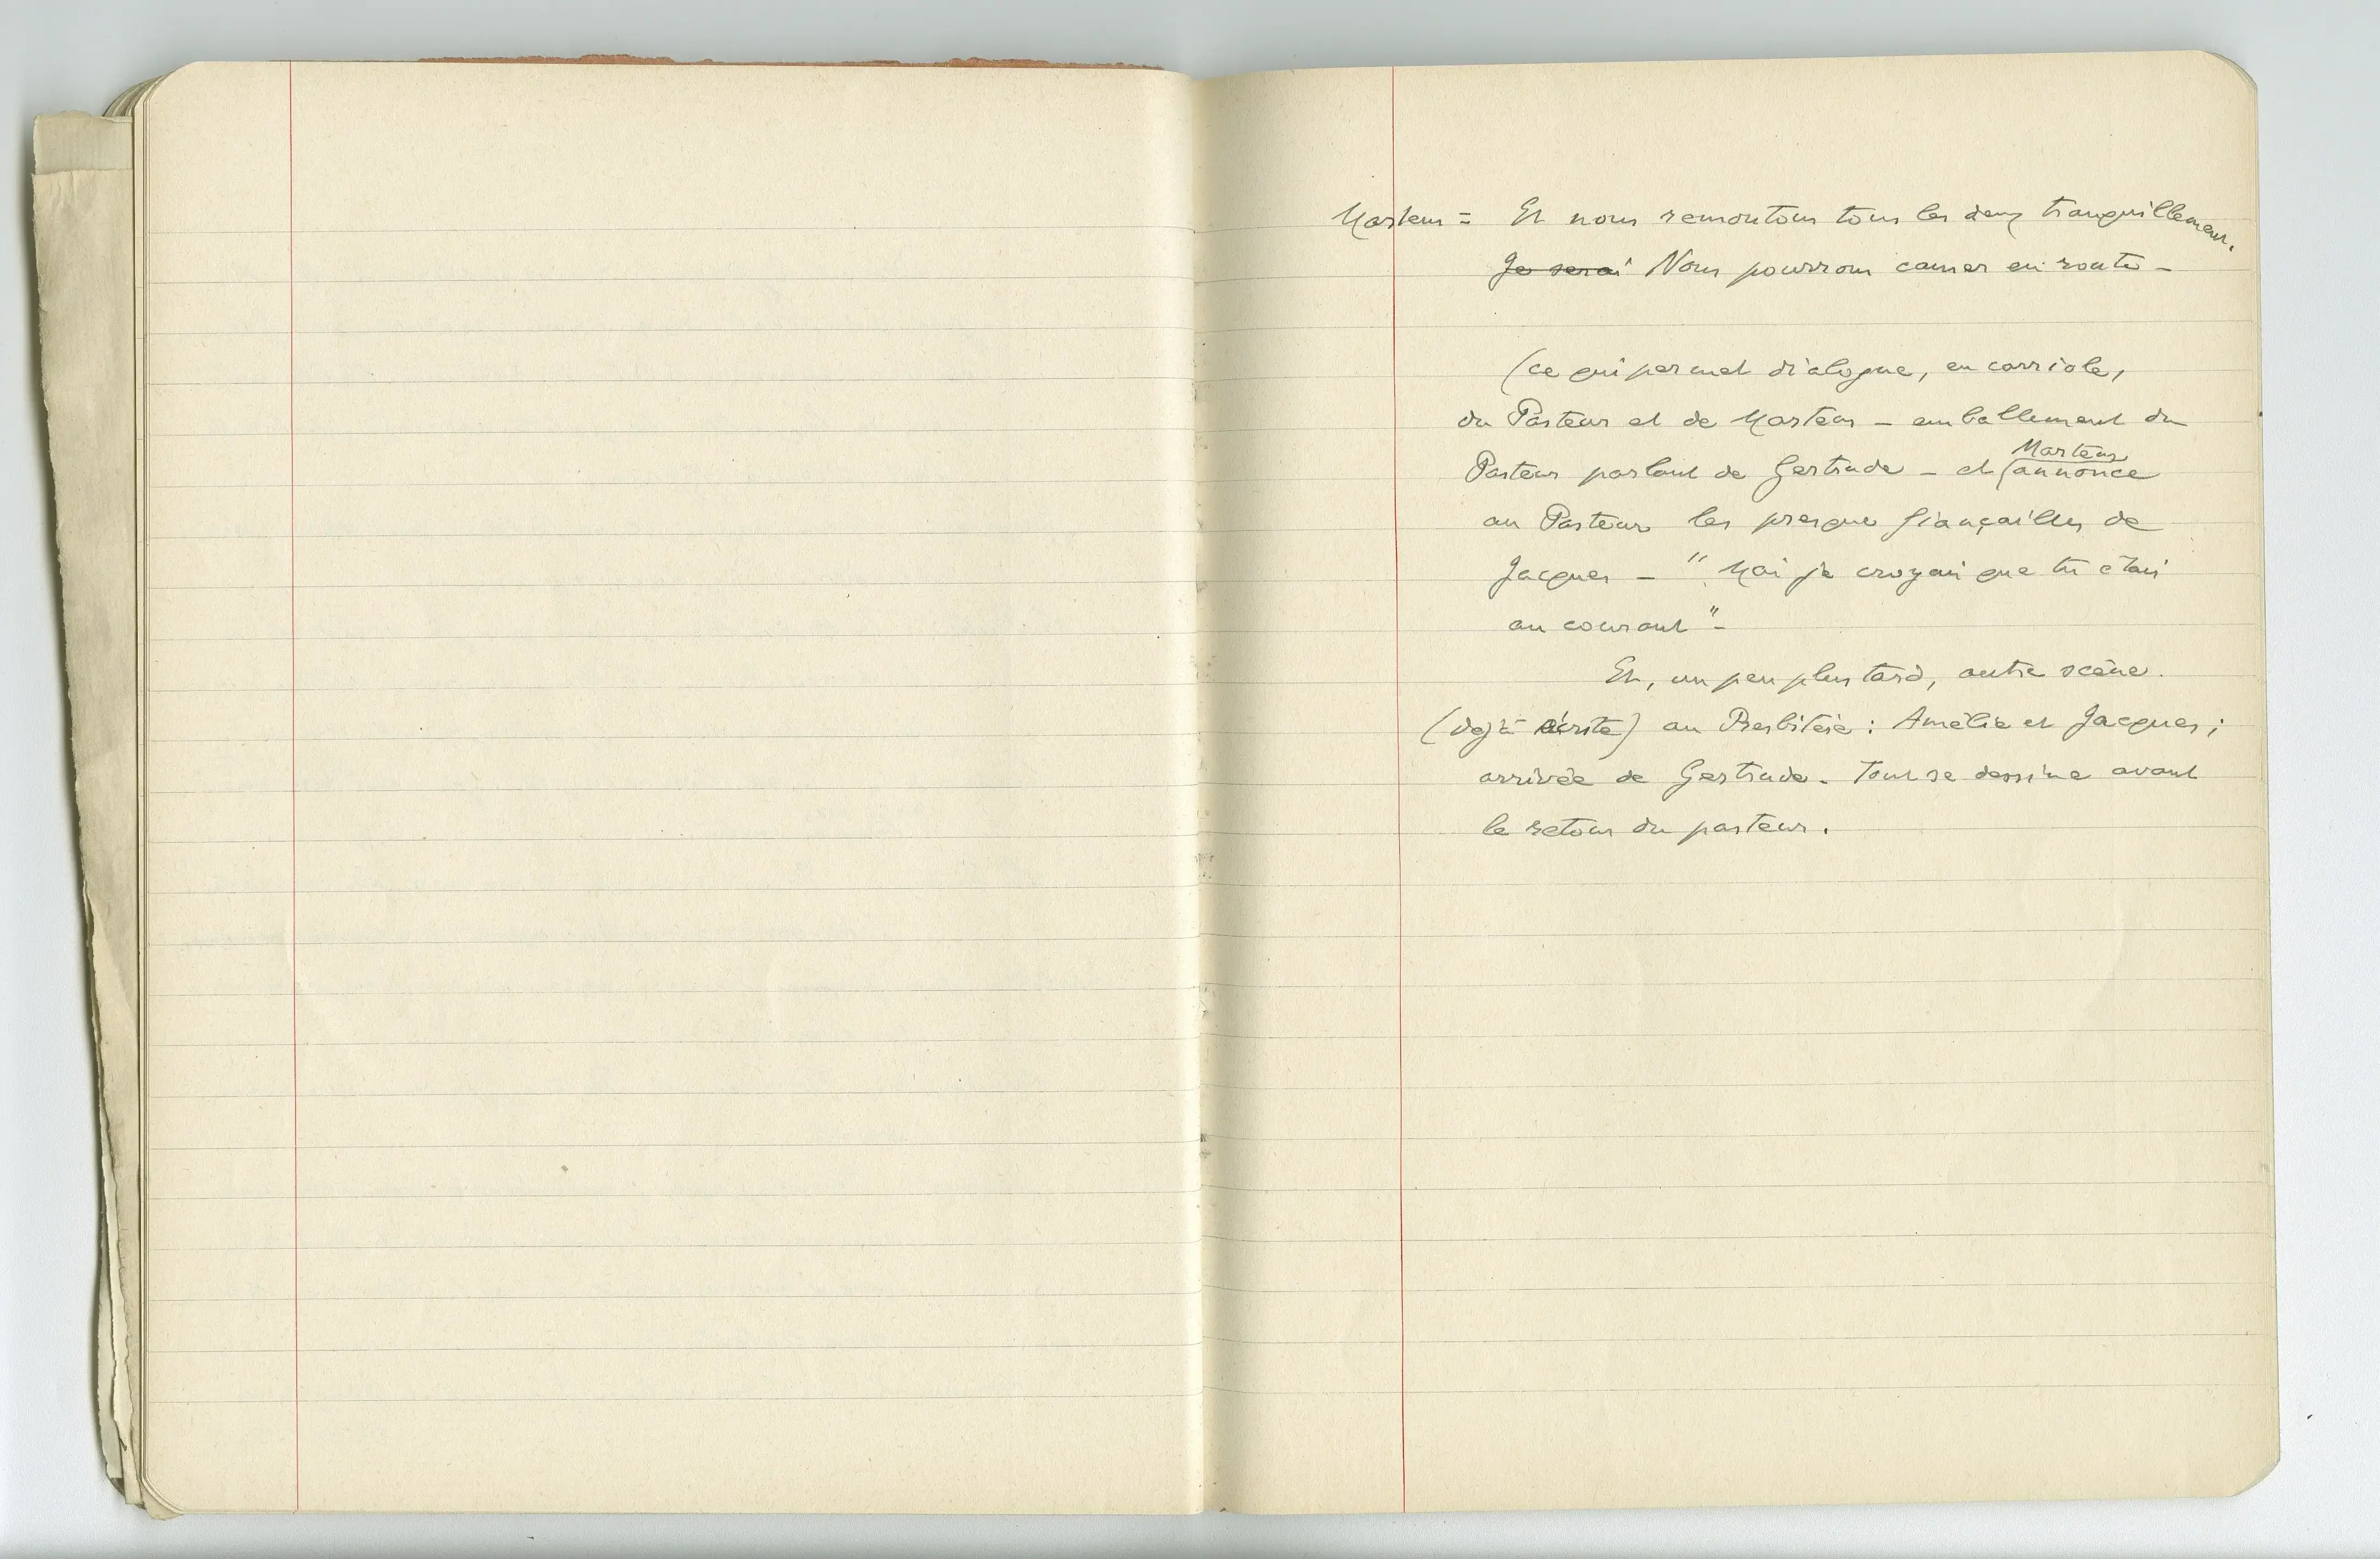 Martens = Et nous remontons tous les deux tranquillement.
Je serai Nous pourrons causer en route –
(ce qui permet dialogue, en carriole,
du Pasteur et de Martens – emballement du
Pasteur parlant de Gertrude – et Martens annonce
au Pasteur les presque fiançailles de
Jacques – " Moi je croyais que tu étais
au courant " –
Et, un peu plus tard, autre scène.
(déjà écrite) au Presbitère : Amélie et Jacques ;
arrivée de Gertrude – Tout se dessine avant
le retour du pasteur.